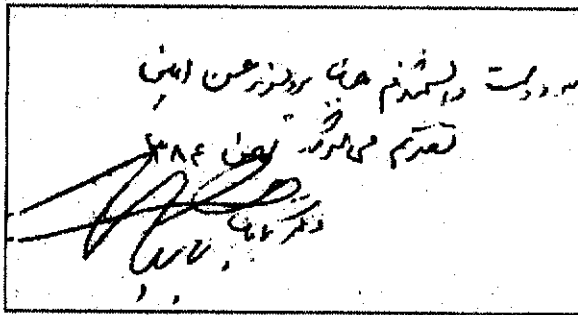 به دوست دانشمندم جناب پروفسور حسن امین
تقدیم می‌شود. تهران ۳۸۴
دکتر